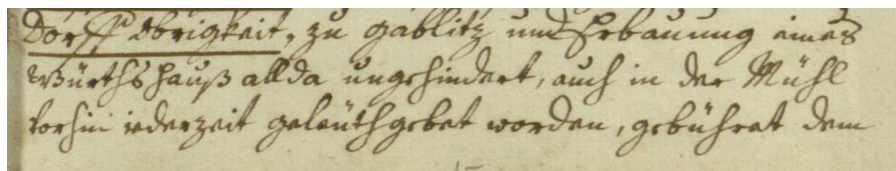 Dorff Obrigkeit, zu Gablitz und Erbauung eines
Würthshauß allda ungehindert, auch in der Mühl
vorhin iederzeit geleüthgebet worden, gebühret dem